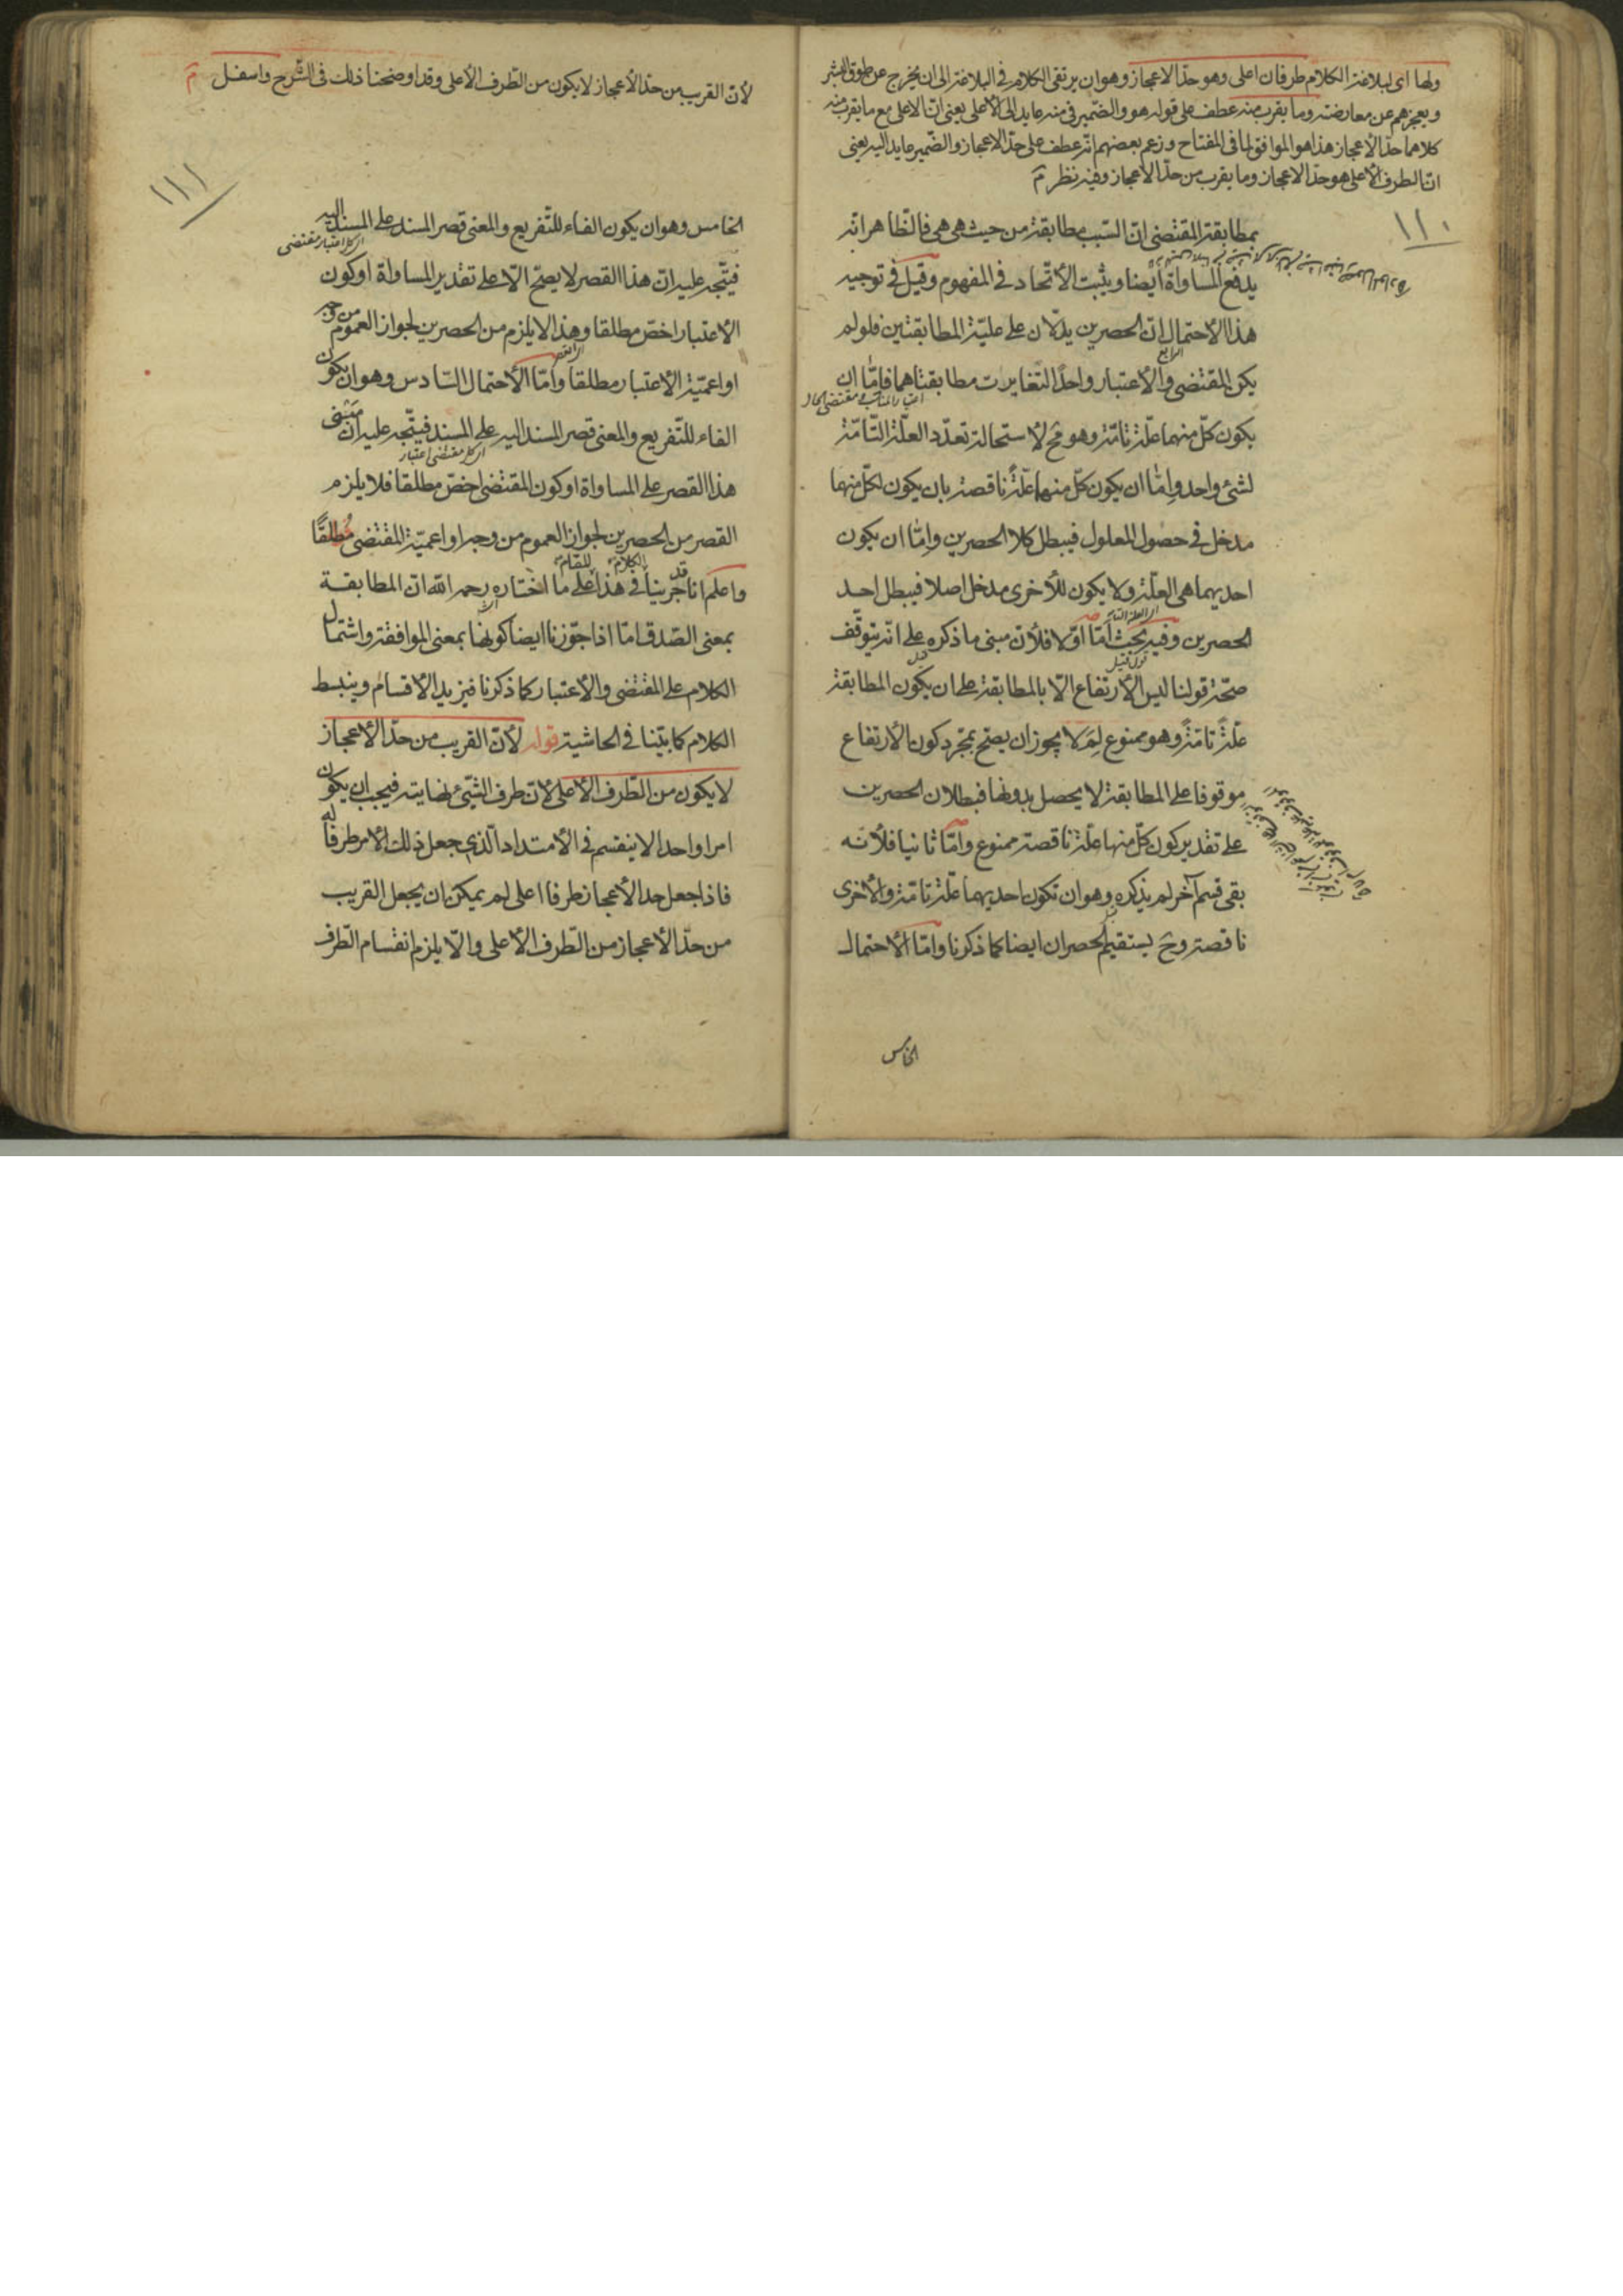 ولها اى لبلاغة الكلام طرفان اعلى وهو حدّ الاعجاز وهو ان يرتقى الكلام فى البلاغة الى ان يخرج عن طوق البشر
ويعجزهم عن معارضته وما يقرب منه عطف على قوله هو والضمير فى منه عايد الى الأعلى يعنى انّ الاعلى مع ما يقرب منه
كلاهما حدّ الأعجاز هذا هو الموافق لما فى المفتاح وزعم بعضهم انّه عطف على حدّ الاعجاز والضّمير عايد اليه يعنى
انّ الطرف الأعلى هو حدّ الاعجاز وما يقرب من حدّ الاعجاز وفيه نظر
١١٠
بمطابقة المقتضى انّ السّبب مطابقة من حيث هى هى فالظّاهر انّه
يدفع المساواة أيضا ويثبت الأتّحاد فى المفهوم وقيل فى توجيه
هذا الأحتمال انّ الحصرين يدلّان على عليّة المطابقتين فلو لم
الرابع
يكن المقتضى والأعتبار واحدًا لتغايرت مطابقتاهما فامّا ان
يكون كلّ منهما علّة تامّة وهو مح لأستحالة تعدّد العلّة التّامّة
لشئ واحد وامّا ان يكون كلّ منهما علّةً ناقصة بان يكون لكلّ منهما
مدخل فى حصول المعلول فيبطل كلا الحصرين وامّا ان يكون
احديهما هى العلّة ولا يكون للأخرى مدخل اصلا فيبطل احد
الحصرين وفيه بحث أمّا اوّلا فلأنّ مبنى ما ذكره على انّه يتوقّف
صحّة قولنا ليس الأرتفاع الّا بالمطابقة على ان يكون المطابقة
علّةً تامّةً وهو ممنوع لِمَ لا يجوز ان يصحّ بمجّرد كون الأرتفاع
موقوفا على المطابقة لا يحصل بدونها فبطلان الحصرين
على تقدير كون كلّ منهما علّة ناقصة ممنوع وامّا ثانيا فلأنّه
بقى قسم آخر لم يذكره وهو ان تكون احديهما علّة تامّة والأخرى
ناقصة وح يستقيم الحصران ايضا كما ذكرنا وامّا الأحتمال
الخامس
لأنّ القريب من حدّ الأعجاز لا يكون من الطّرف الأعلى وقد اوضحنا ذلك فى الشّرح واسفل
١١١
الخامس وهو ان يكون الفاء للتّفريع والمعنى قصر المسند على المسند اليه
اى كل اعتبار مقتضى
فيتّجه عليه انّ هذا القصر لا يصحّ الّا على تقدير المساواة او كون
الأعتبار اخصّ مطلقا وهذا لا يلزم من الحصرين لجواز العموم من وجه
او اعميّة الأعتبار مطلقا وامّا الأحتمال السّادس وهو ان يكون
الفاء للتّفريع والمعنى قصر المسند اليه على المسند فيتّجه عليه انّ مبنى
اى كل مقتضى اعتبار
هذا القصر على المساواة او كون المقتضى اخصّ مطلقا فلا يلزم
القصر من الحصرين لجواز العموم من وجه او اعميّة المقتضى مُطلقًا
واعلم انا قد جرينا فى هذا الكلام للمقام على ما اختاره رحمه الله انّ المطابقة
بمعنى الصّدق امّا اذا جوّزنا ايضا كونها بمعنى الموافقة واشتمال
الكلام على المقتضى والأعتبار كما ذكرنا فيزيد الأقسام وينبسط
الكلام كما بيّنا فى الحاشية قوله لأنّ القريب من حدّ الأعجاز
لا يكون من الطّرف الأعلى لأنّ طرف الشّئ نهايته فيجب ان يكون
امرا واحدا لا ينقسم فى الأمتداد الّذى جعل ذلك الأمر طرفًا له
فاذا جعل حد الأعجاز طرفا اعلى لم يمكن ان يجعل القريب
من حدّ الأعجاز من الطّرف الأعلى والّا يلزم انقسام الطّرف